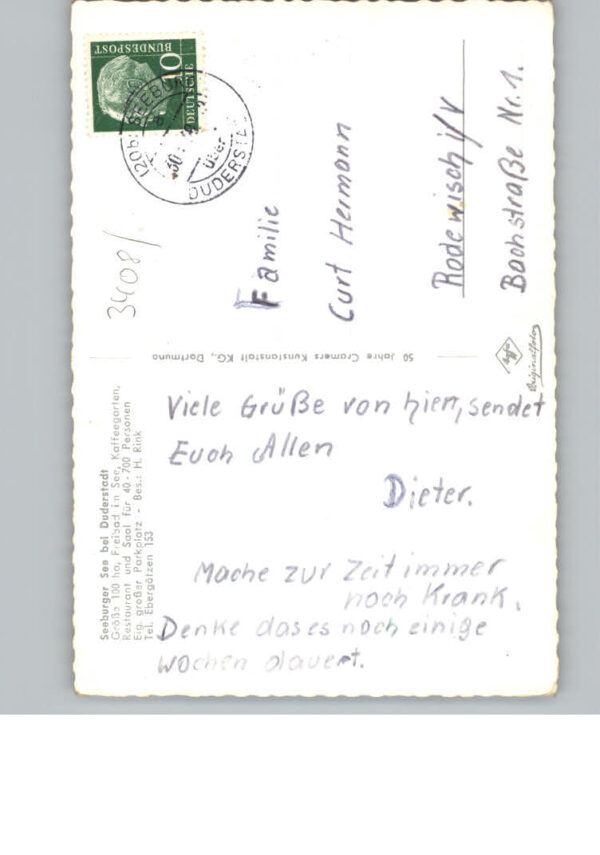 Seeburger See bei Duderstadt
Größe 100 ha, Freibad im See, Kaffeegarten,
Restaurant und Saal für 40-700 Personen
Eig. großer Parkplatz - Bes.: H. Rink
Tel. Ebergötzen 153
Viele Grüße von hier, sendet
Euch Allen
Dieter.
Mache zur Zeit immer
noch Krank.
Denke das es noch einige
wochen dauert.
50 Jahre Cramers Kunstanstalt KG., Dortmund
Agfa
Originalfoto
3408/
DEUTSCHE
BUNDESPOST
10
(20b) SEEBURG
30.
über
DUDERSTADT
Familie
Curt Hermann
Rodewisch i/V
Bachstraße Nr. 1.